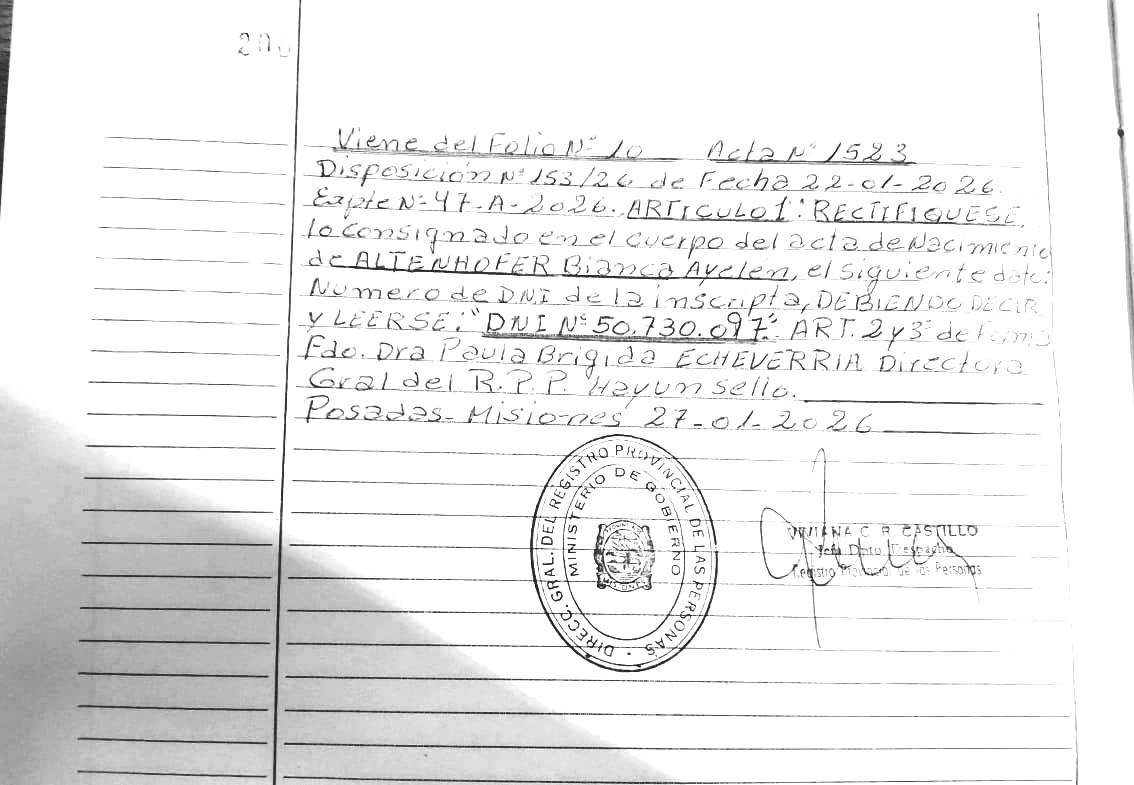 200
Viene del Folio Nº 10 Acta Nº 1523
Disposición Nº 153/26 de Fecha 22-01-2026.
Expte Nº 47-A-2026. ARTICULO 1º: RECTIFIQUESE,
lo consignado en el cuerpo del acta de Nacimiento
de ALTENHOFER Bianca Ayelen, el siguiente dato:
Numero de DNI de la inscripta, DEBIENDO DECIR
y LEERSE: "DNI Nº 50.730.097". ART. 2 y 3º de Forma
Fdo. Dra Paula Brigida ECHEVERRIA Directora
Gral del R.P.P. Hay un sello.
Posadas-Misiones 27-01-2026
DIRECC. GRAL. DEL REGISTRO PROVINCIAL DE LAS PERSONAS
MINISTERIO DE GOBIERNO
MISIONES
VIVIANA C. R. CASTILLO
Jefa Dpto. Despacho
Registro Provincial de las Personas